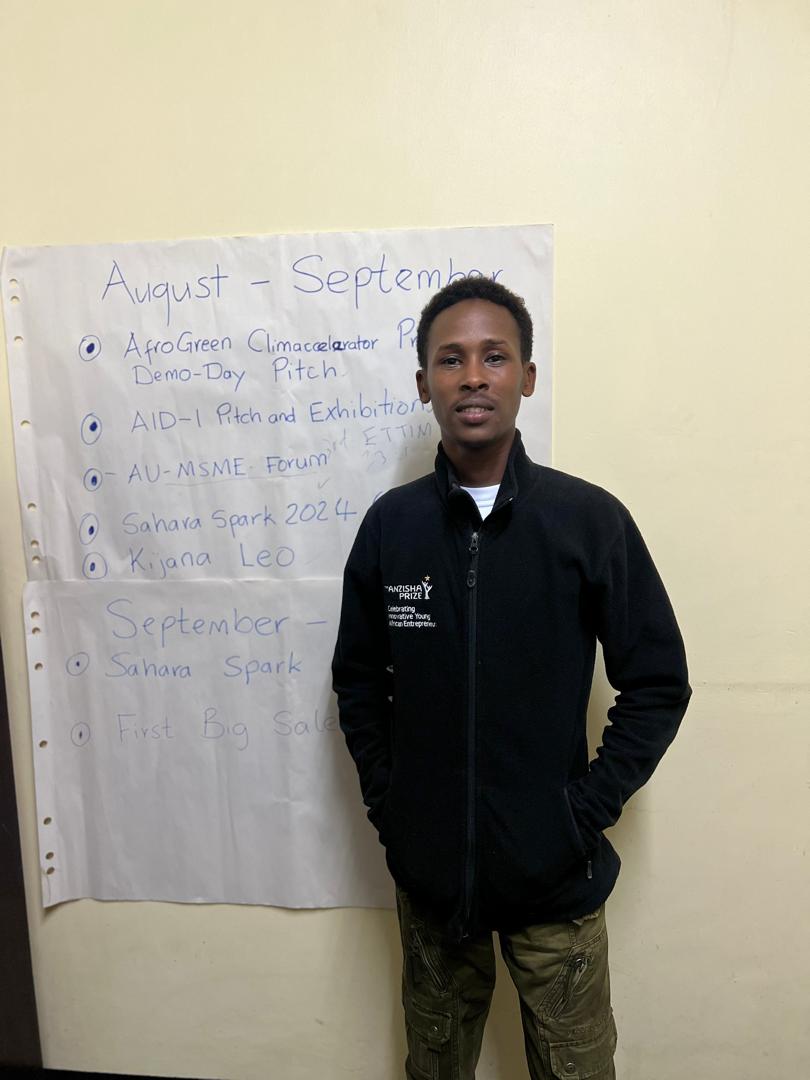 August - September
AfroGreen Climaccelerator Pr
Demo-Day Pitch.
AID-I Pitch and Exhibition
ETTIM
- AU-MSME Forum
Sahara Spark 2024
Kijana Leo
September -
Sahara Spark
First Big Sale
ANZISHA
PRIZE
Celebrating
Innovative Young
African Entrepreneur